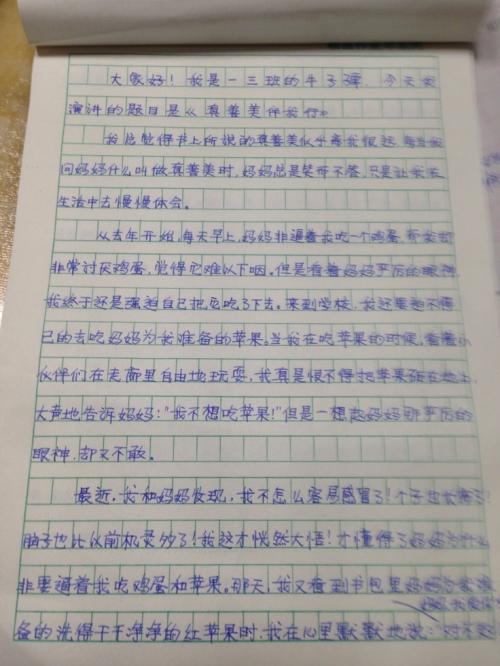 大家好！我是一三班的牛子弹，今天我
演讲的题目是《真善美伴我行》
我总觉得书上所说的真善美似乎离我很远，每当我
问妈妈什么叫做真善美时，妈妈总是笑而不答，只是让我在
生活中去慢慢体会。
从去年开始，每天早上，妈妈非逼着我吃一个鸡蛋，
非常讨厌鸡蛋，觉得它难以下咽。但是看着妈妈严厉的眼神，
我终于还是强迫自己把它吃了下去。来到学校，我还要迫不得
已的去吃妈妈为我准备的苹果。当我在吃苹果的时候，看着小
伙伴们在走廊里自由地玩耍，我真是恨不得把苹果砸在地上，
大声地告诉妈妈："我不想吃苹果！"但是一想起妈妈那严厉的
眼神，却又不敢。
最近，我和妈妈发现，我不怎么容易感冒了！个子也长高了！
脑子也比以前机灵多了！我这才恍然大悟！才懂得了妈妈为什么
非要逼着我吃鸡蛋和苹果。那天，我又看到书包里妈妈为我准
妈妈，我爱你
备的洗得干干净净的红苹果时，我在心里默默地说："对不起